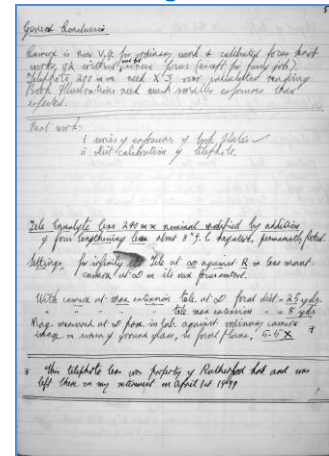 5
General Conclusions
Camera is now V.G. for ordinary work & calibrated focus knob
works OK without screen focus (except for fussy job).
Telephoto, 240 mm need X 3 over calculator reading
Book illustrations need much smaller exposures than
expected.
Next work:
i series of exposures of book plates ✓
ii dist calibration of telephoto.
Tele lens 240 mm nominal modified by addition
of four lengthening lens about 8" f.l. negative, permanently fitted.
Settings for infinity the tele at ∞ against R on lens mount.
camera at ∞ on its own focus control.
With camera at max extension tele at ∞ focal dist = 25 yds.
" " " " tele max extension " = 8 yds
Mag. measured at ∞ from in lab. against ordinary camera
image on screen of ground glass, in focal plane, 5.5 X *
* This telephoto lens was property of Rutherford Lab and was
left there on my retirement on April 1st